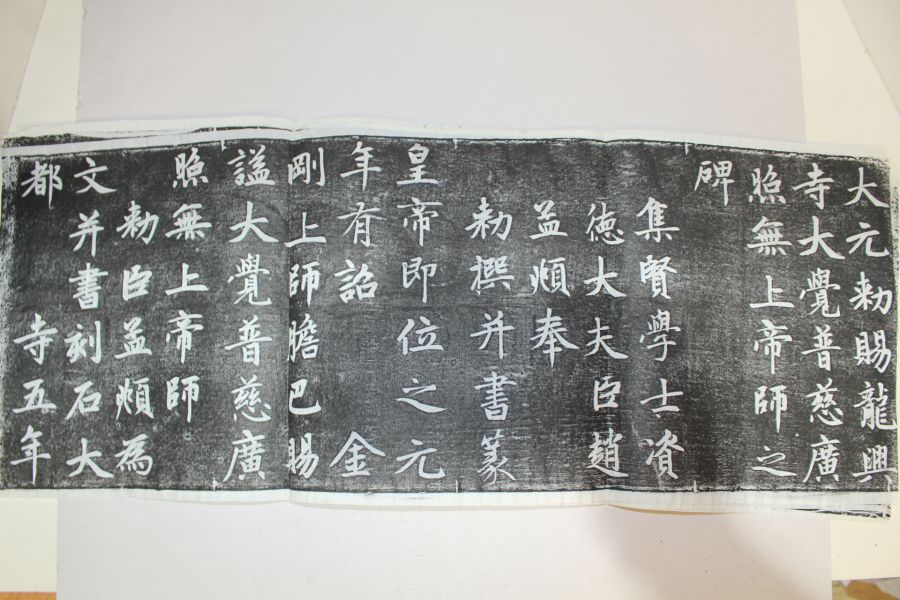 大元勅賜龍興
寺大覺普慈廣
照無上帝師之
碑
集賢學士資
德大夫臣趙
孟頫奉
勅撰并書篆
皇帝即位之元
年有詔金
剛上師膽巴賜
謚大覺普慈廣
照無上帝師
勅臣孟頫為
文并書刻石大
都寺五年